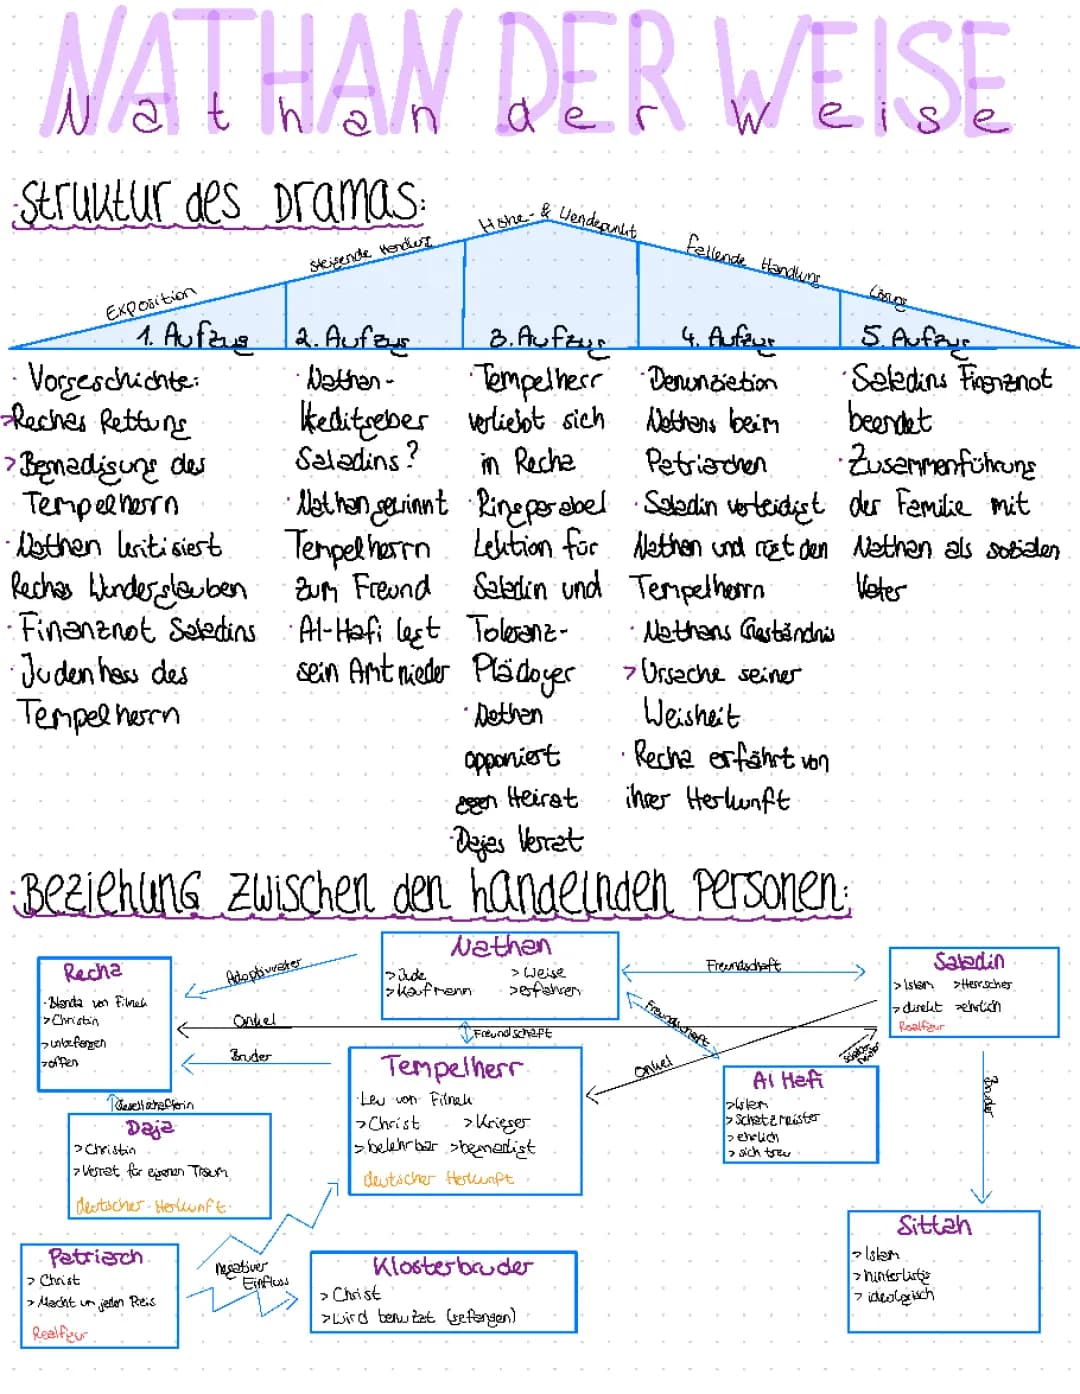 NATHAN DER WEISE
Nathan der Weise
Struktur des Dramas:
Exposition
steigende Handlung
Höhe- & Wendepunkt
Fallende Handlung
Lösung
1. Aufzug
2. Aufzug
3. Aufzug
4. Aufzug
5. Aufzug
· Vorgeschichte:
> Rechas Rettung
> Begnadigung des
Tempelherrn
· Nathan kritisiert
Rechas Wunderglauben
· Finanznot Saladins
· Judenhass des
Tempelherrn
· Nathan -
Kreditgeber
Saladins?
· Nathan gewinnt
Tempelherrn
zum Freund
· Al-Hafi legt
sein Amt nieder
· Tempelherr
verliebt sich
in Recha
· Ringparabel
Lektion für
Saladin und
Toleranz-
Plädoyer
· Nathan
opponiert
gegen Heirat
· Dajas Verrat
· Denunziation
Nathans beim
Patriarchen
· Saladin verteidigt
Nathan und rügt den
Tempelherrn
· Nathans Geständnis
> Ursache seiner
Weisheit
· Recha erfährt von
ihrer Herkunft
· Saladins Finanznot
beendet
· Zusammenführung
der Familie mit
Nathan als sozialen
Vater
· Beziehung zwischen den handelnden Personen:
Recha
· Blanda von Filnek
> Christin
> unbefangen
> offen
Adoptivvater
Onkel
Bruder
Nathan
> Jude
> Weise
> Kaufmann
> erfahren
Freundschaft
Freundschaft
Freundschaft
Onkel
Saladin
> Islam
> Herrscher
> direkt
> ehrlich
Realfigur
Tempelherr
· Leu von Filnek
> Christ
> Krieger
> belehrbar
> begnadigt
deutscher Herkunft
Al Hafi
> Islam
> Schatzmeister
> ehrlich
> sich treu
Bruder
Gesellschafterin
Daja
> Christin
> Verrat für eigenen Traum
deutscher Herkunft
Patriarch
> Christ
> Macht um jeden Preis
Realfigur
negativer
Einfluss
Klosterbruder
> Christ
> wird benutzt (gefangen)
Sittah
> Islam
> hinterlistig
> ideologisch